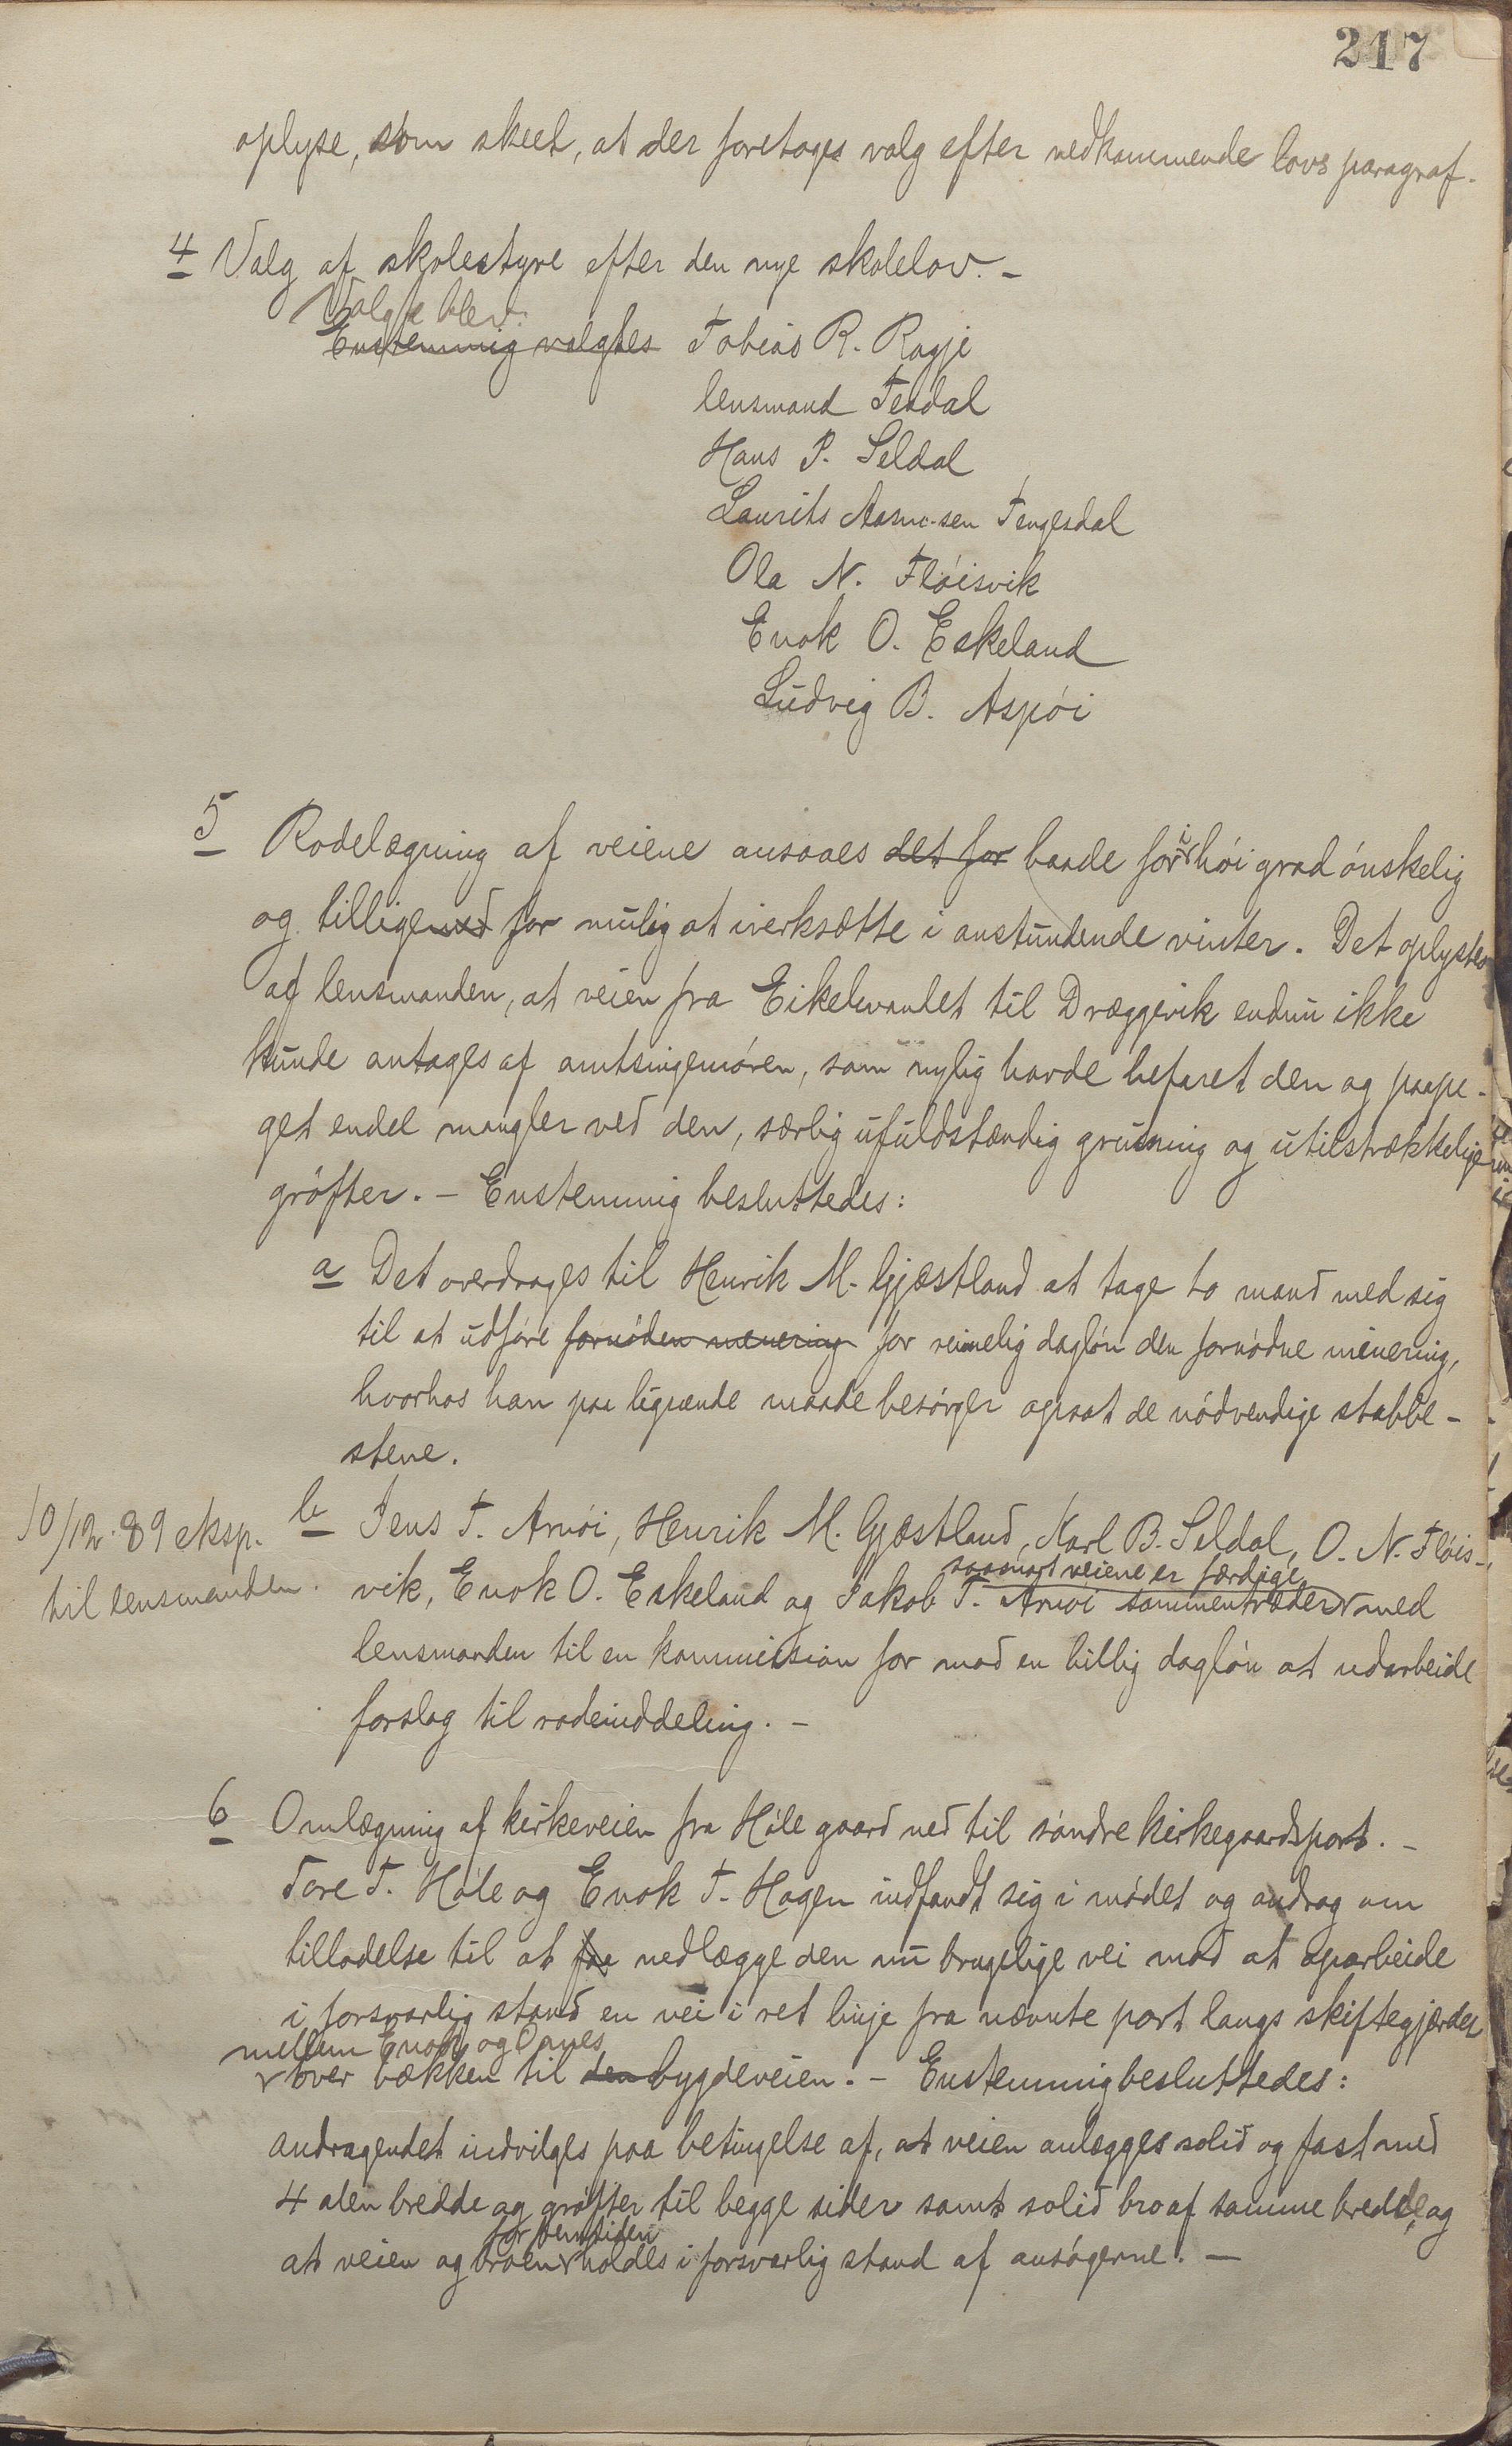 217
oplyse, som skeet, at der foretages valg efter vedkommende lovs paragraf.
4 Valg af skolestyre efter den nye skolelov. -
Valgte blev:
Enstemmig valgtes Tobias R. Ragje
lensmand Tesdal
Hans P. Seldal
Laurits Aasm.sen Tengesdal
Ola N. Flöisvik
Enok O. Eskeland
Ludvig B. Aspöi
5 Rodelægning af veiene ansaaes det for baade for i höi grad önskelig
og tilligemed for mulig at iverksætte i anstundende vinter. Det oplystes
af lensmanden, at veien fra Eikelivandet til Dræggevik endnu ikke
kunde antages af amtsingeniören, som nylig havde befaret den og paape-
get endel mangler ved den, særlig ufuldstændig grusning og utilstrækkelige
gröfter. - Enstemmig besluttedes:
a Det overdrages til Henrik M. Gjæstland at tage to mand med sig
til at udföre fornöden menering for rimelig daglön den fornödne minering,
hvorhos han paa lignende maade besörger ogsaa de nödvendige stabbe-
stene.
10/12.89 eksp.
til lensmanden.
b Jens T. Arnöi, Henrik M. Gjæstland, Karl B. Seldal, O. N. Flöis-
saasnart veiene er færdige,
vik, Enok O. Eskeland og Jakob T. Arnöi sammentræder med
lensmanden til en kommission for mod en billig daglön at udarbeide
forslag til rodeinddeling. -
6 Omlægning af kirkeveien fra Höle gaard ned til söndre kirkegaardsport. -
Tore T. Höle og Enok T. Hogen indfandt sig i mödet og androg om
tilladelse til at faa nedlægge den nu brugelige vei mod at oparbeide
i forsvarlig stand en vei i ret linje fra nævnte port langs skiftegjærdet
mellem Enok og Omes
over bækken til den bygdeveien. - Enstemmig besluttedes:
andragendet indvilges paa betingelse af, at veien anlægges solid og fast med
4 alen bredde og gröfter til begge sider samt solid bro af samme bredde, og
for fremtiden
at veien og broen holdes i forsvarlig stand af ansögerne. -